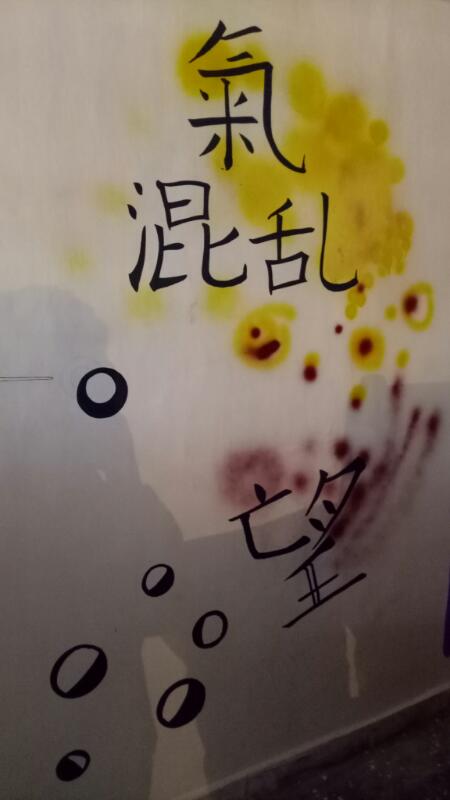 氣
混乱
望